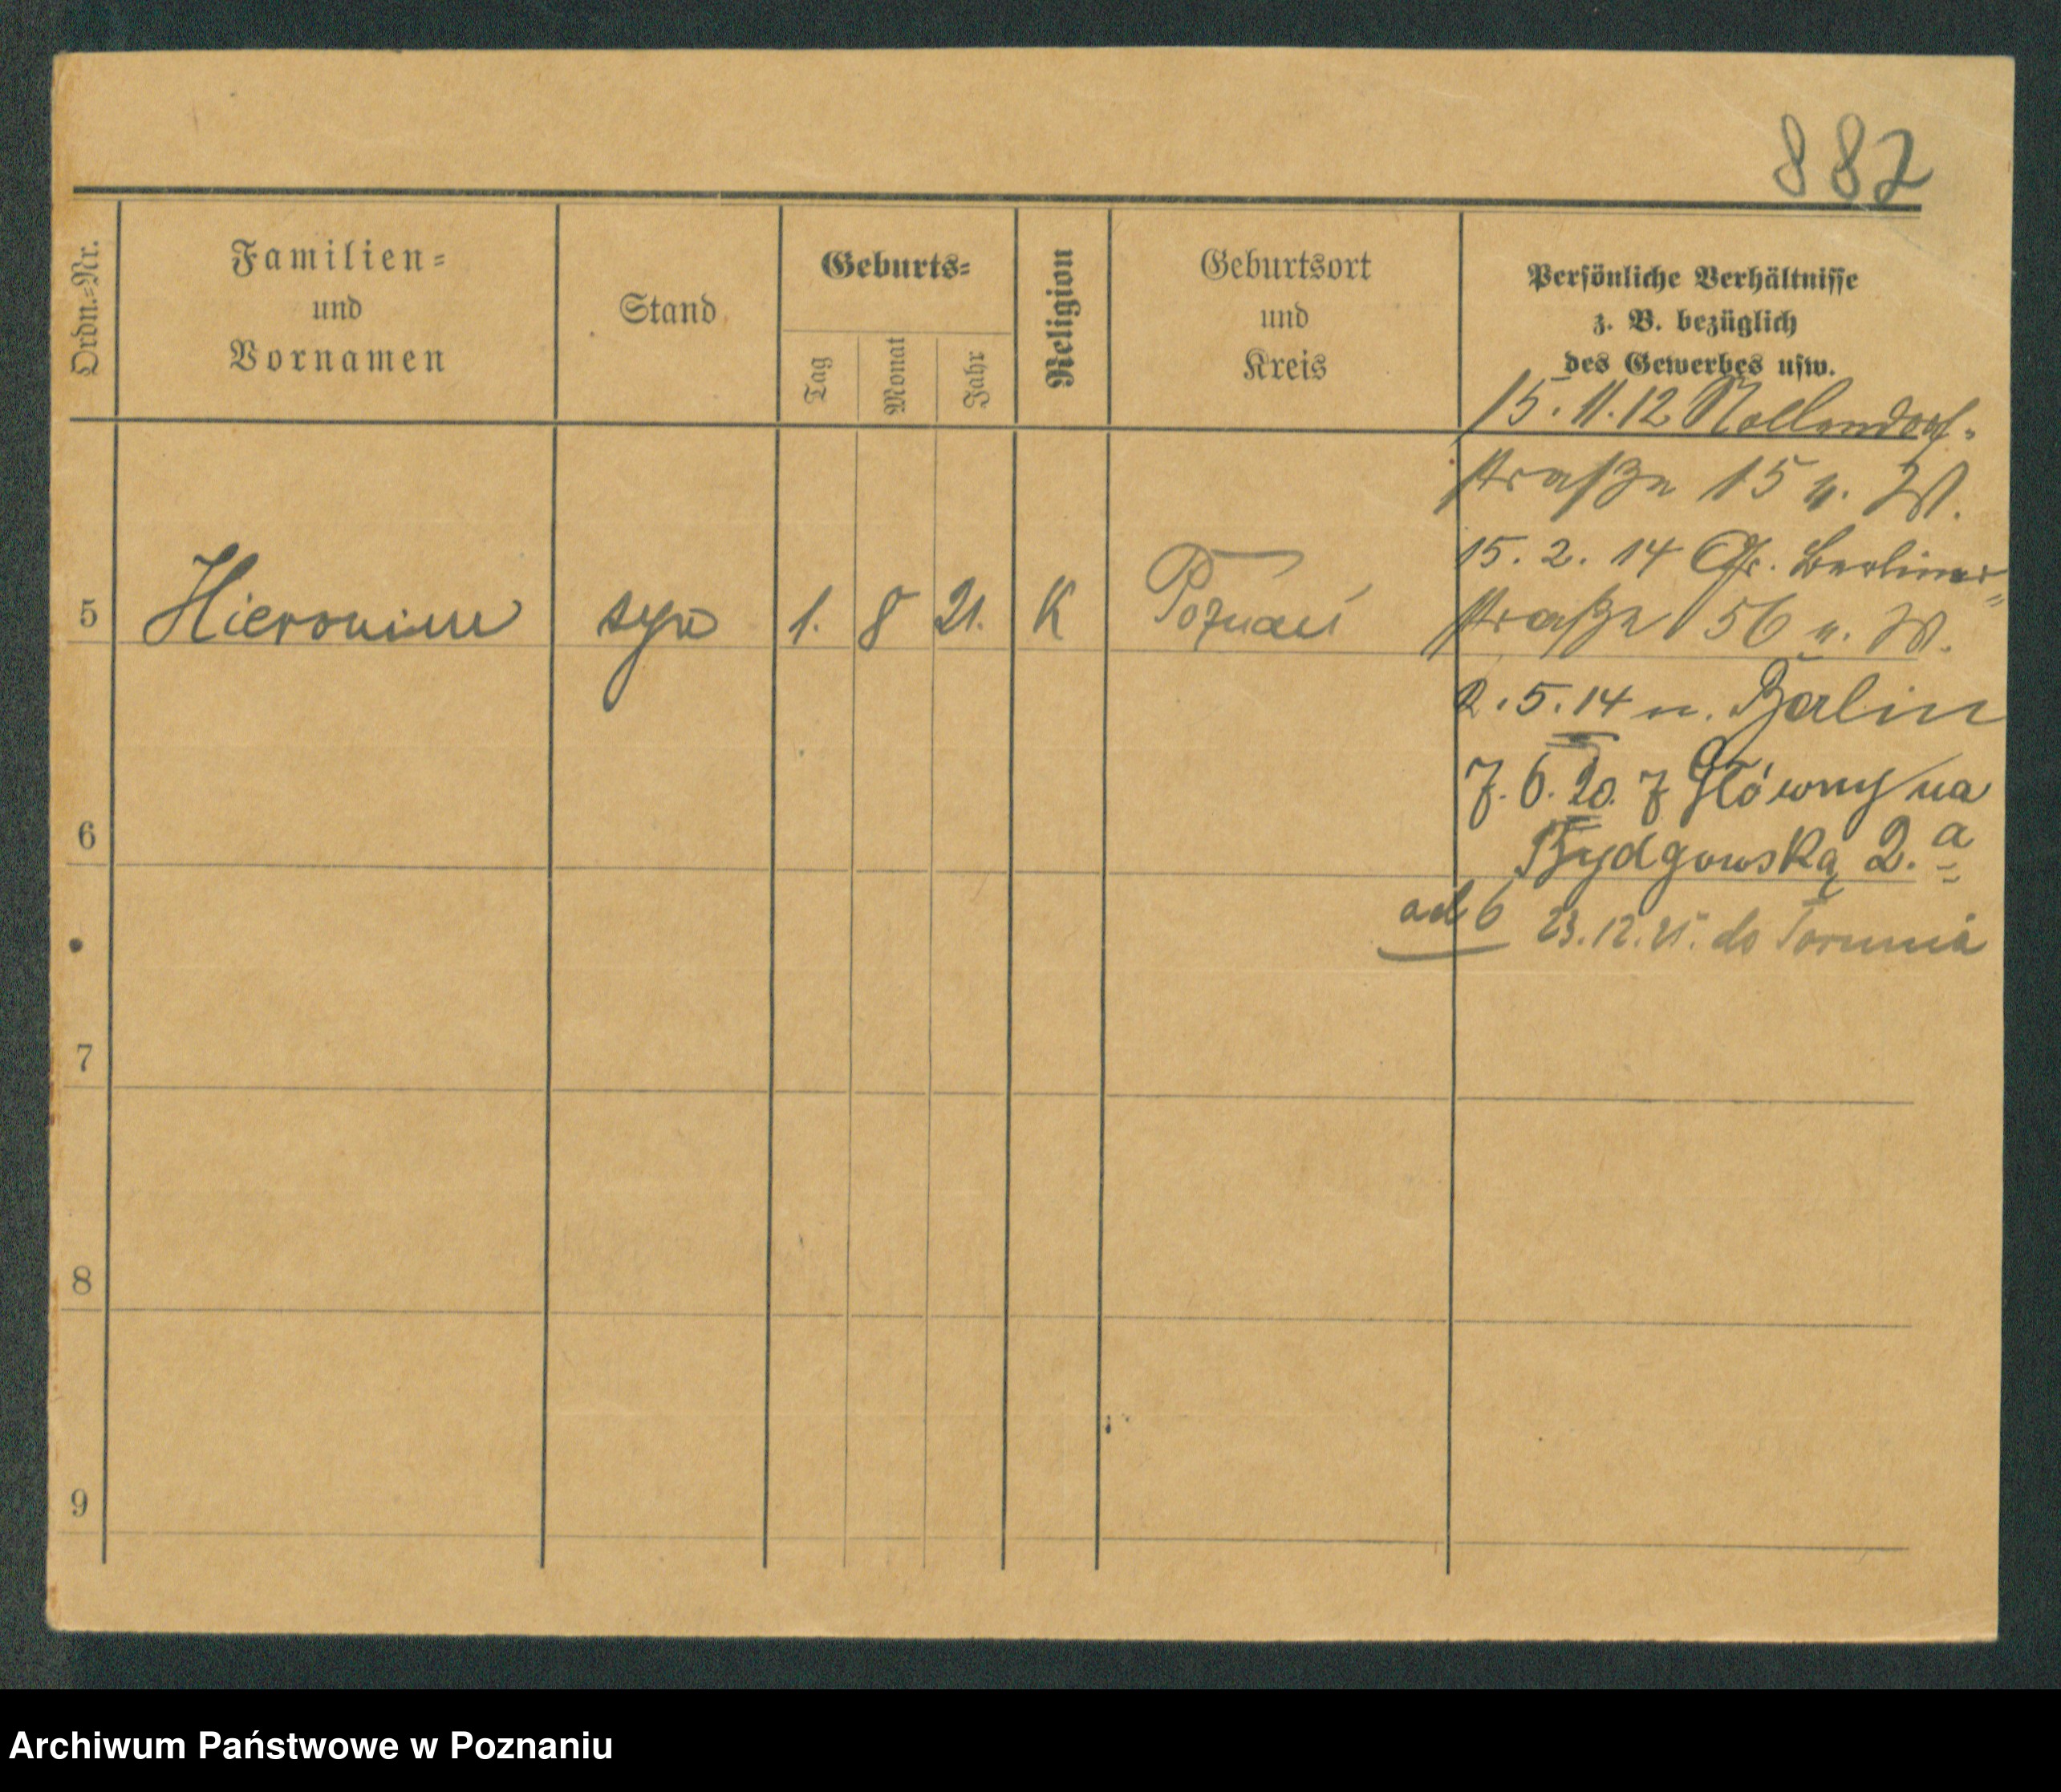 882
Ordn.-Nr.
Familien-
und
Vornamen
Stand
Geburts-
Tag
Monat
Jahr
Religion
Geburtsort
und
Kreis
Persönliche Verhältnisse
z. B. bezüglich
des Gewerbes usw.
15. 11. 12 Nollendorf-
straße 15 u. W.
15. 2. 14 Gr. Berliner-
straße 56 u. W.
5 Hieronim syn 1. 8 21. K Poznań
2. 5. 14 n. Berlin
7. 6. 20. z Główny na
6
Bydgowską 2.a
ad 6 23. 12. 21. do Torunia
7
8
9
Archiwum Państwowe w Poznaniu